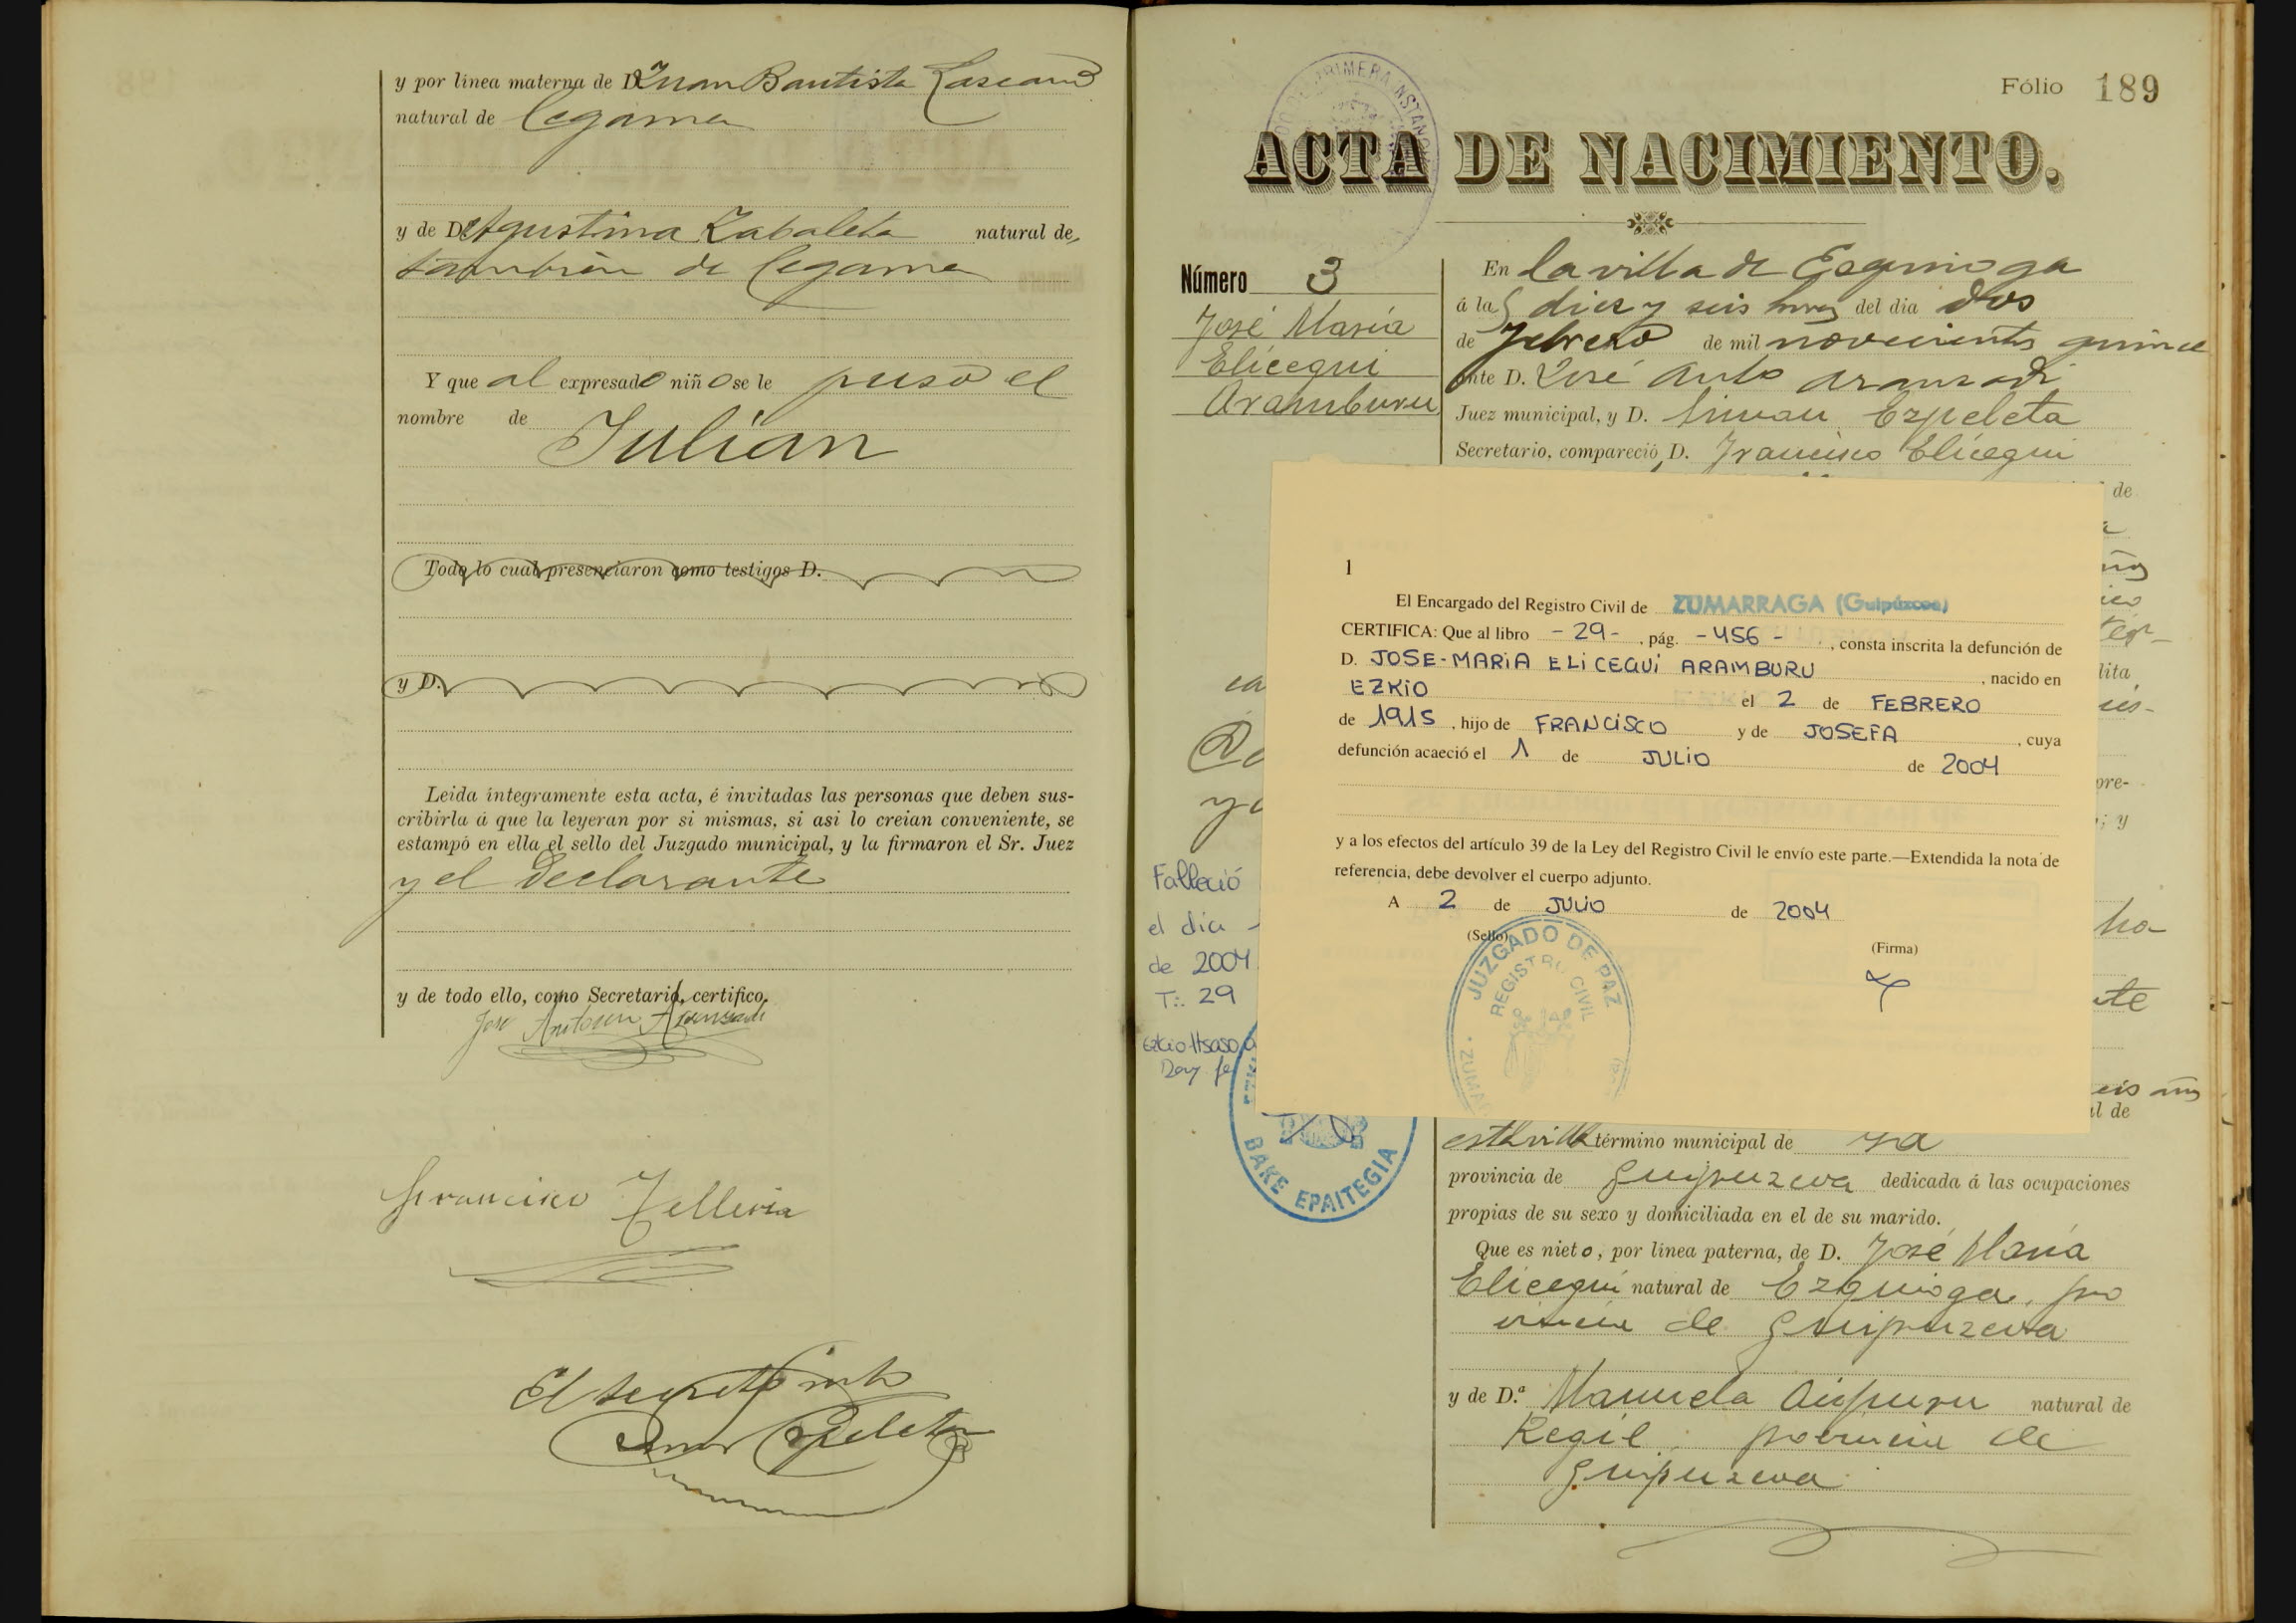 y por línea materna de D. Juan Bautista Lascano
natural de Cegama
y de D.ª Agustina Zabaleta natural de
también de Cegama
Y que al expresado niño se le puso el
nombre de
Julián
Todo lo cual presenciaron como testigos D.
y D.
Leida íntegramente esta acta, é invitadas las personas que deben sus-
cribirla á que la leyeran por si mismas, si asi lo creian conveniente, se
estampó en ella el sello del Juzgado municipal, y la firmaron el Sr. Juez
y el Declarante
y de todo ello, como Secretario, certifico.
José Antonio Aranzadi
Francisco Telleria
El Secreto
Ezpeleta
Fólio 189
ACTA DE NACIMIENTO.
Número 3
José María
Elícegui
Aramburu
En la villa de Ezquioga
á las diez y seis horas del dia dos
de Febrero de mil novecientos quince
ante D. José Anto Aranzadi
Juez municipal, y D. Simau Ezpeleta
Secretario, compareció D. Francisco Elícegui
de
1
El Encargado del Registro Civil de ZUMARRAGA (Guipúzcoa)
CERTIFICA: Que al libro - 29 - , pág. - 456 - , consta inscrita la defunción de
D. JOSE-MARIA ELICEGUI ARAMBURU , nacido en
EZKIO el 2 de FEBRERO
de 1915 , hijo de FRANCISCO y de JOSEFA , cuya
defunción acaeció el 1 de JULIO de 2004
y a los efectos del artículo 39 de la Ley del Registro Civil le envío este parte.—Extendida la nota de
referencia, debe devolver el cuerpo adjunto.
A 2 de JULIO de 2004
(Sello)
(Firma)
JUZGADO DE PAZ
REGISTRO CIVIL
lita
pre-
; y
ho
eis años
al de
Falleció
el día
de 2004
T: 29
Ezkio-Itsaso
Doy fe
BAKE EPAITEGIA
esta villa término municipal de id
provincia de Guipuzcoa dedicada á las ocupaciones
propias de su sexo y domiciliada en el de su marido.
Que es nieto, por línea paterna, de D. José María
Elícegui natural de Ezquioga, pro
vincia de Guipuzcoa
y de D.ª Manuela Aizpuru natural de
Regil, provincia de
Guipuzcoa